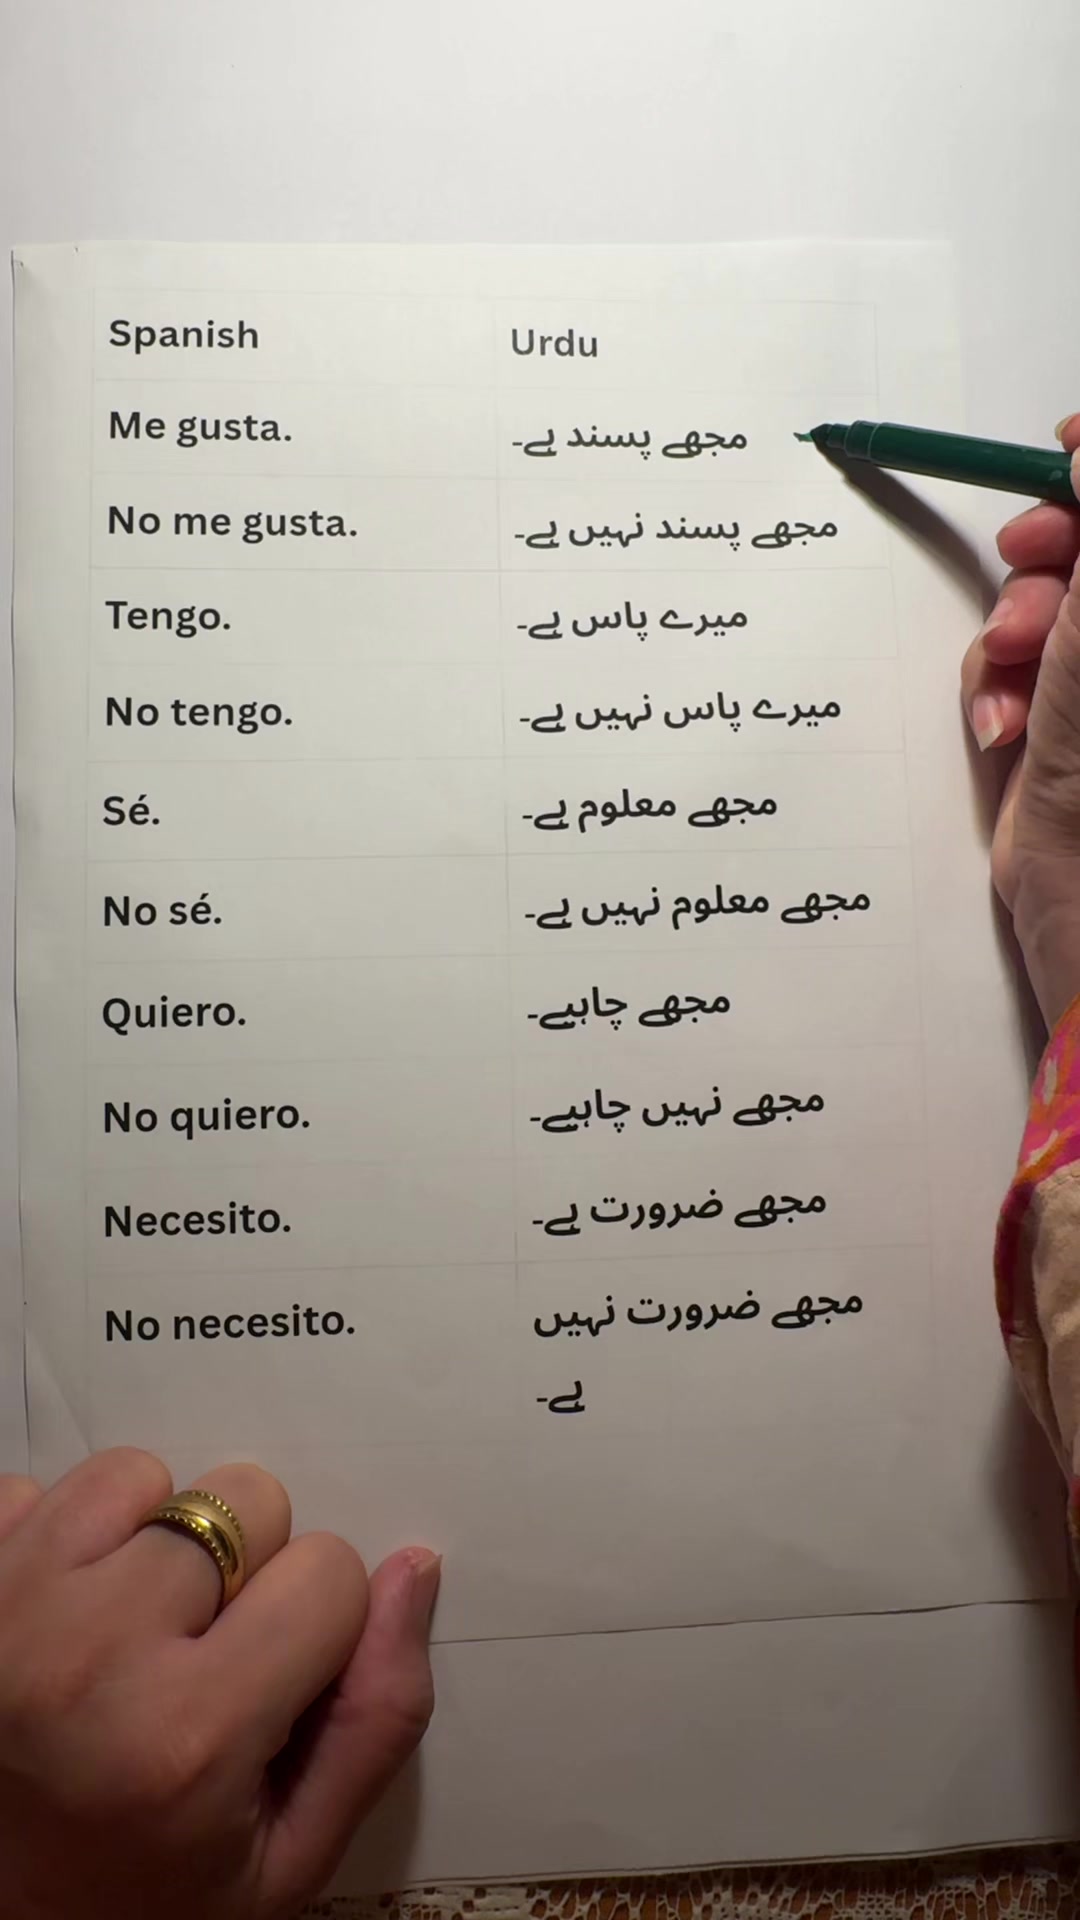 Spanish Urdu
Me gusta. مجھے پسند ہے۔
No me gusta. مجھے پسند نہیں ہے۔
Tengo. میرے پاس ہے۔
No tengo. میرے پاس نہیں ہے۔
Sé. مجھے معلوم ہے۔
No sé. مجھے معلوم نہیں ہے۔
Quiero. مجھے چاہیے۔
No quiero. مجھے نہیں چاہیے۔
Necesito. مجھے ضرورت ہے۔
No necesito. مجھے ضرورت نہیں
ہے۔